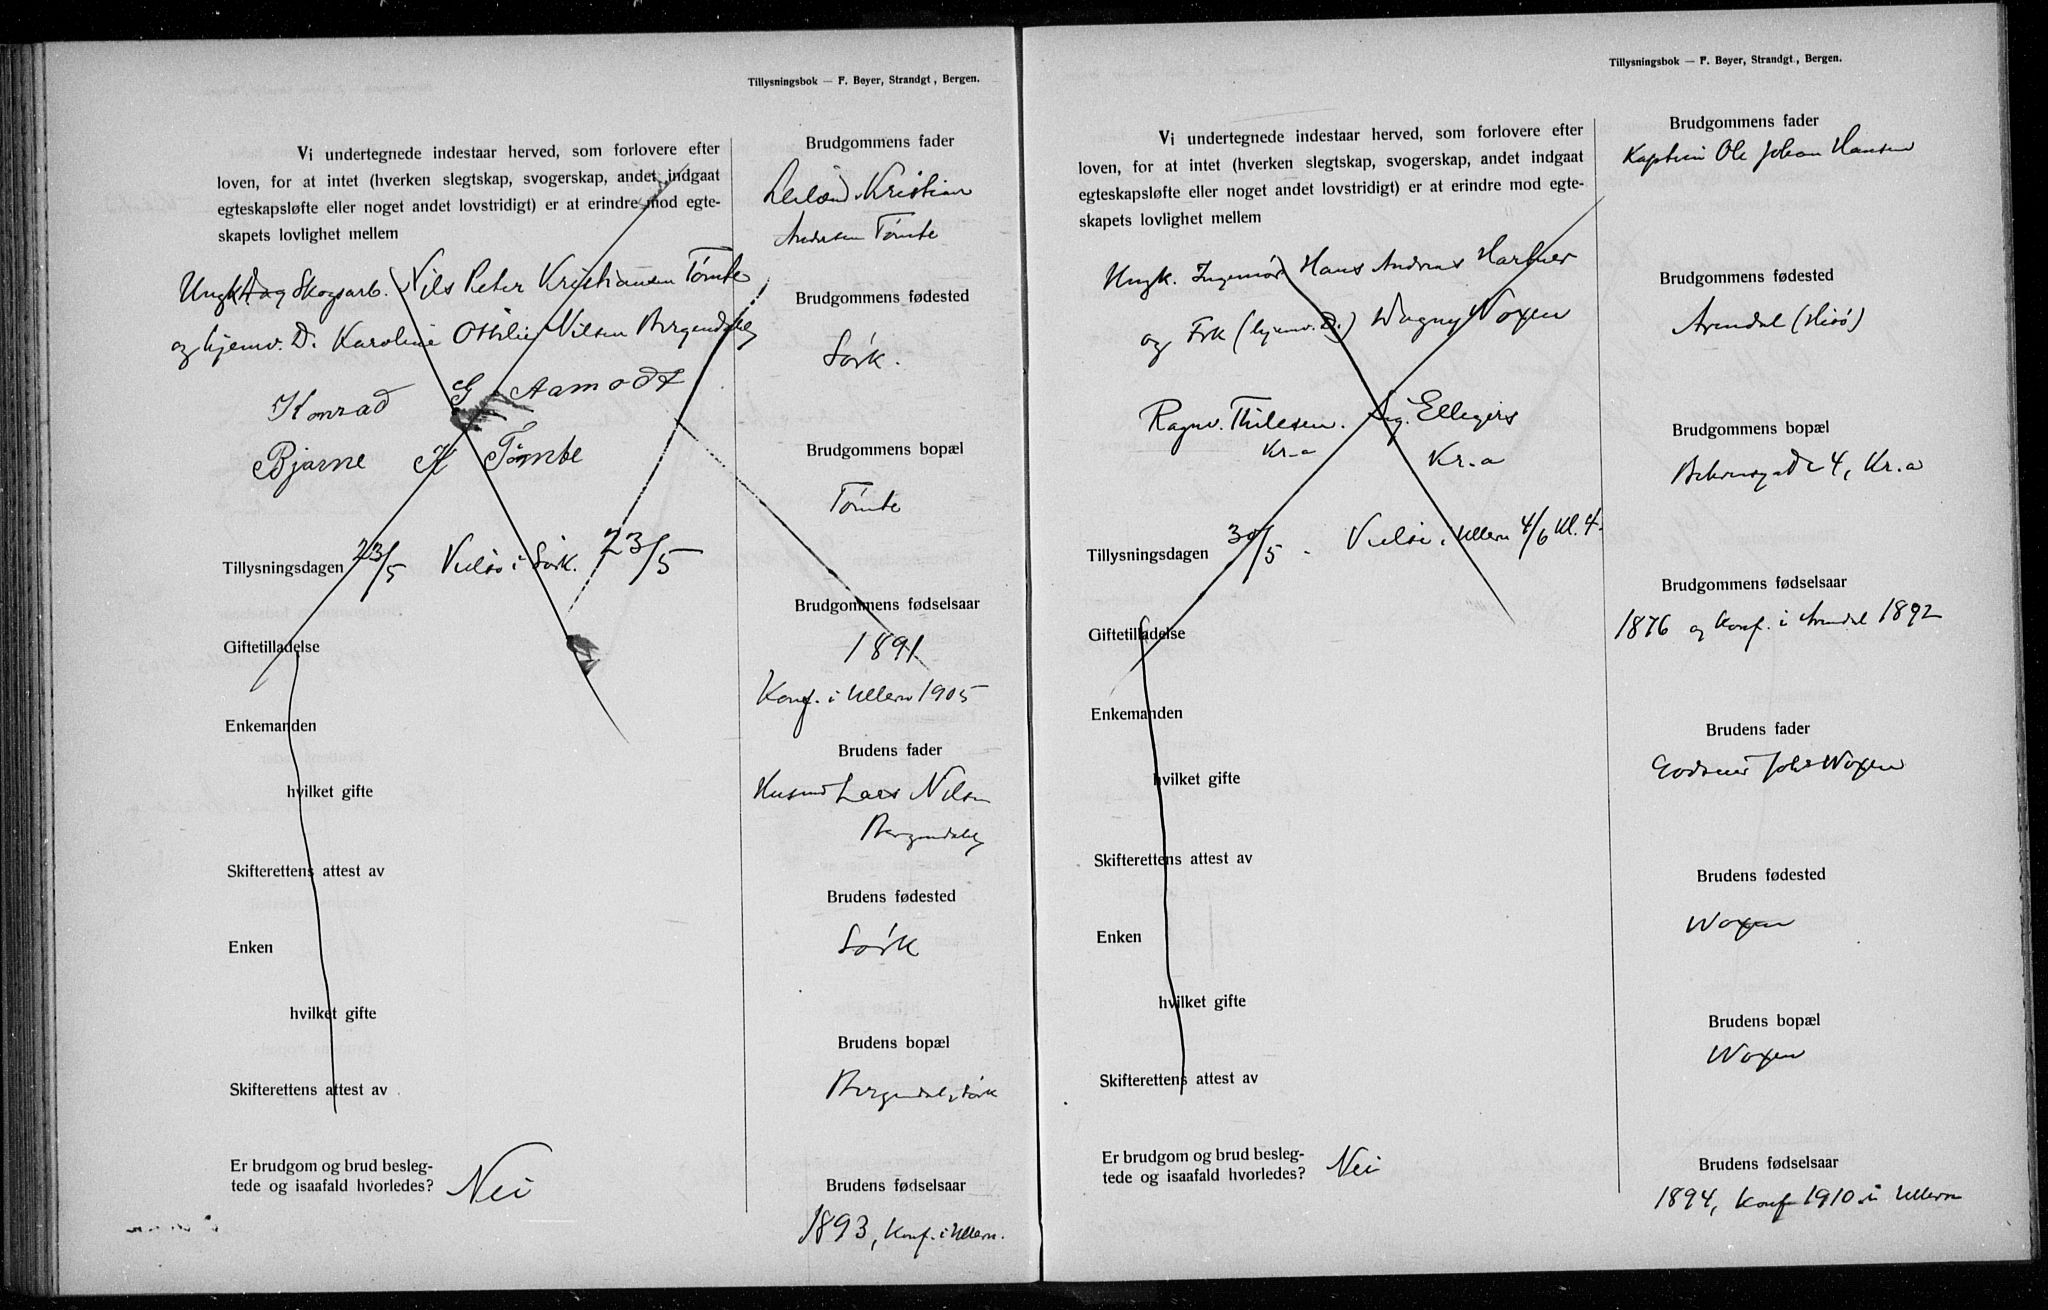 Tillysningsbok — F. Beyer, Strandgt, Bergen.
Vi undertegnede indestaar herved, som forlovere efter
loven, for at intet (hverken slegtskap, svogerskap, andet indgaat
egteskapsløfte eller noget andet lovstridigt) er at erindre mod egte-
skapets lovlighet mellem
Ungk. Skogsarb. Nils Peter Kristiansen Tømte
og hjemv. D. Karoline Othilie Nilsen Bergendahl
Konrad G Aamodt
Bjarne K Tømte
Tillysningsdagen 23/5 Vielse i Sørk. 23/5
Giftetilladelse
Enkemanden
hvilket gifte
Skifterettens attest av
Enken
hvilket gifte
Skifterettens attest av
Er brudgom og brud besleg-
tede og isaafald hvorledes? Nei
Brudgommens fader
Kristian
Andersen Tømte
Brudgommens fødested
Sørk.
Brudgommens bopæl
Tømte
Brudgommens fødselsaar
1891
Konf. i Ullern 1905
Brudens fader
Husmd Lars Nilsen
Brudens fødested
Sørk
Brudens bopæl
Bergendal, Sørk
Brudens fødselsaar
1893, Konf. i Ullern.
Tillysningsbok — F. Beyer, Strandgt., Bergen.
Vi undertegnede indestaar herved, som forlovere efter
loven, for at intet (hverken slegtskap, svogerskap, andet indgaat
egteskapsløfte eller noget andet lovstridigt) er at erindre mod egte-
skapets lovlighet mellem
Ungk. Ingeniør Hans Andreas
og Frk (hjemv. D.) Dagny Woxen
Ragnv. Thilesen. Sig. Ellegers
Kr.a Kr.a
Tillysningsdagen 30/5 - Vielse i Ullern 4/6 Kl. 4-
Giftetilladelse
Enkemanden
hvilket gifte
Skifterettens attest av
Enken
hvilket gifte
Skifterettens attest av
Er brudgom og brud besleg-
tede og isaafald hvorledes? Nei
Brudgommens fader
Kaptein Ole Johan Hansen
Brudgommens fødested
Arendal (Hisø)
Brudgommens bopæl
4, Kr.a
Brudgommens fødselsaar
1876 og Konf. i Arendal 1892
Brudens fader
Godseier Johs Woxen
Brudens fødested
Woxen
Brudens bopæl
Woxen
Brudens fødselsaar
1894, Konf 1910 i Ullern